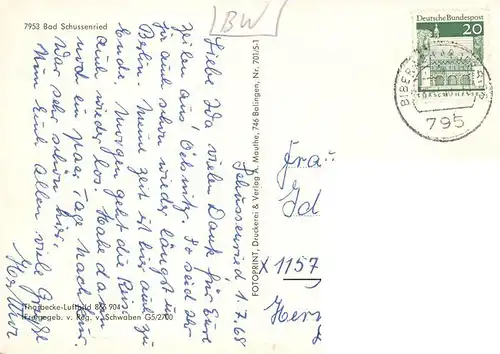 7953 Bad Schussenried
BW
Schussenried 1.7.68
Liebe Ida vielen Dank für Eure
Zeilen aus Oelsnitz. So seid Ihr
ja auch schon wieder längst in
Berlin. Meine Zeit ist hier auch zu
Ende. Morgen geht die Reise
auch wieder los. Habe dann
noch ein paar Tage nach Kur
War sehr schön hier.
Nun Euch allen viele Grüße
Thorbecke-Luftbild
Freigegeb. v. Reg. v. Schwaben G5/2700
FOTOPRINT, Druckerei & Verlag A. Mauthe, 746 Balingen, Nr. 701/5-1
Deutsche Bundespost
20
LORSCH/HESSEN
795
Frau
Id
X 1157
Herm